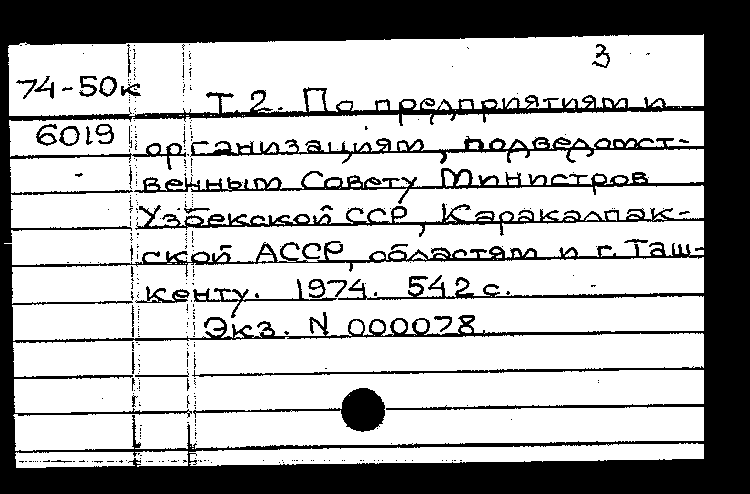 3
74-50к
Т.2. По предприятиям и
6019
организациям, подведомст-
венным Совету Министров
Узбекской ССР, Каракалпак-
ской АССР, областям и г. Таш-
кенту. 1974. 542 с.
Экз. N 000078.